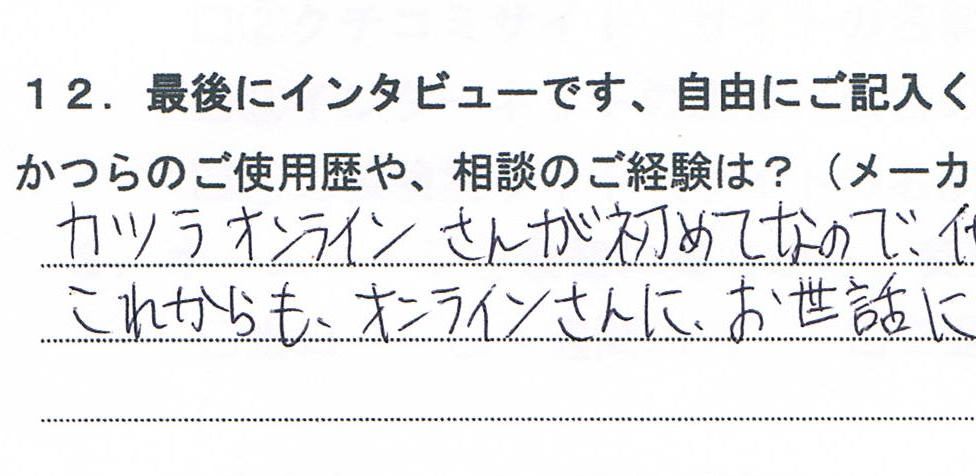 12．最後にインタビューです、自由にご記入く
かつらのご使用歴や、相談のご経験は？（メーカ
カツラオンラインさんが初めてなので、
これからも、オンラインさんに、お世話に